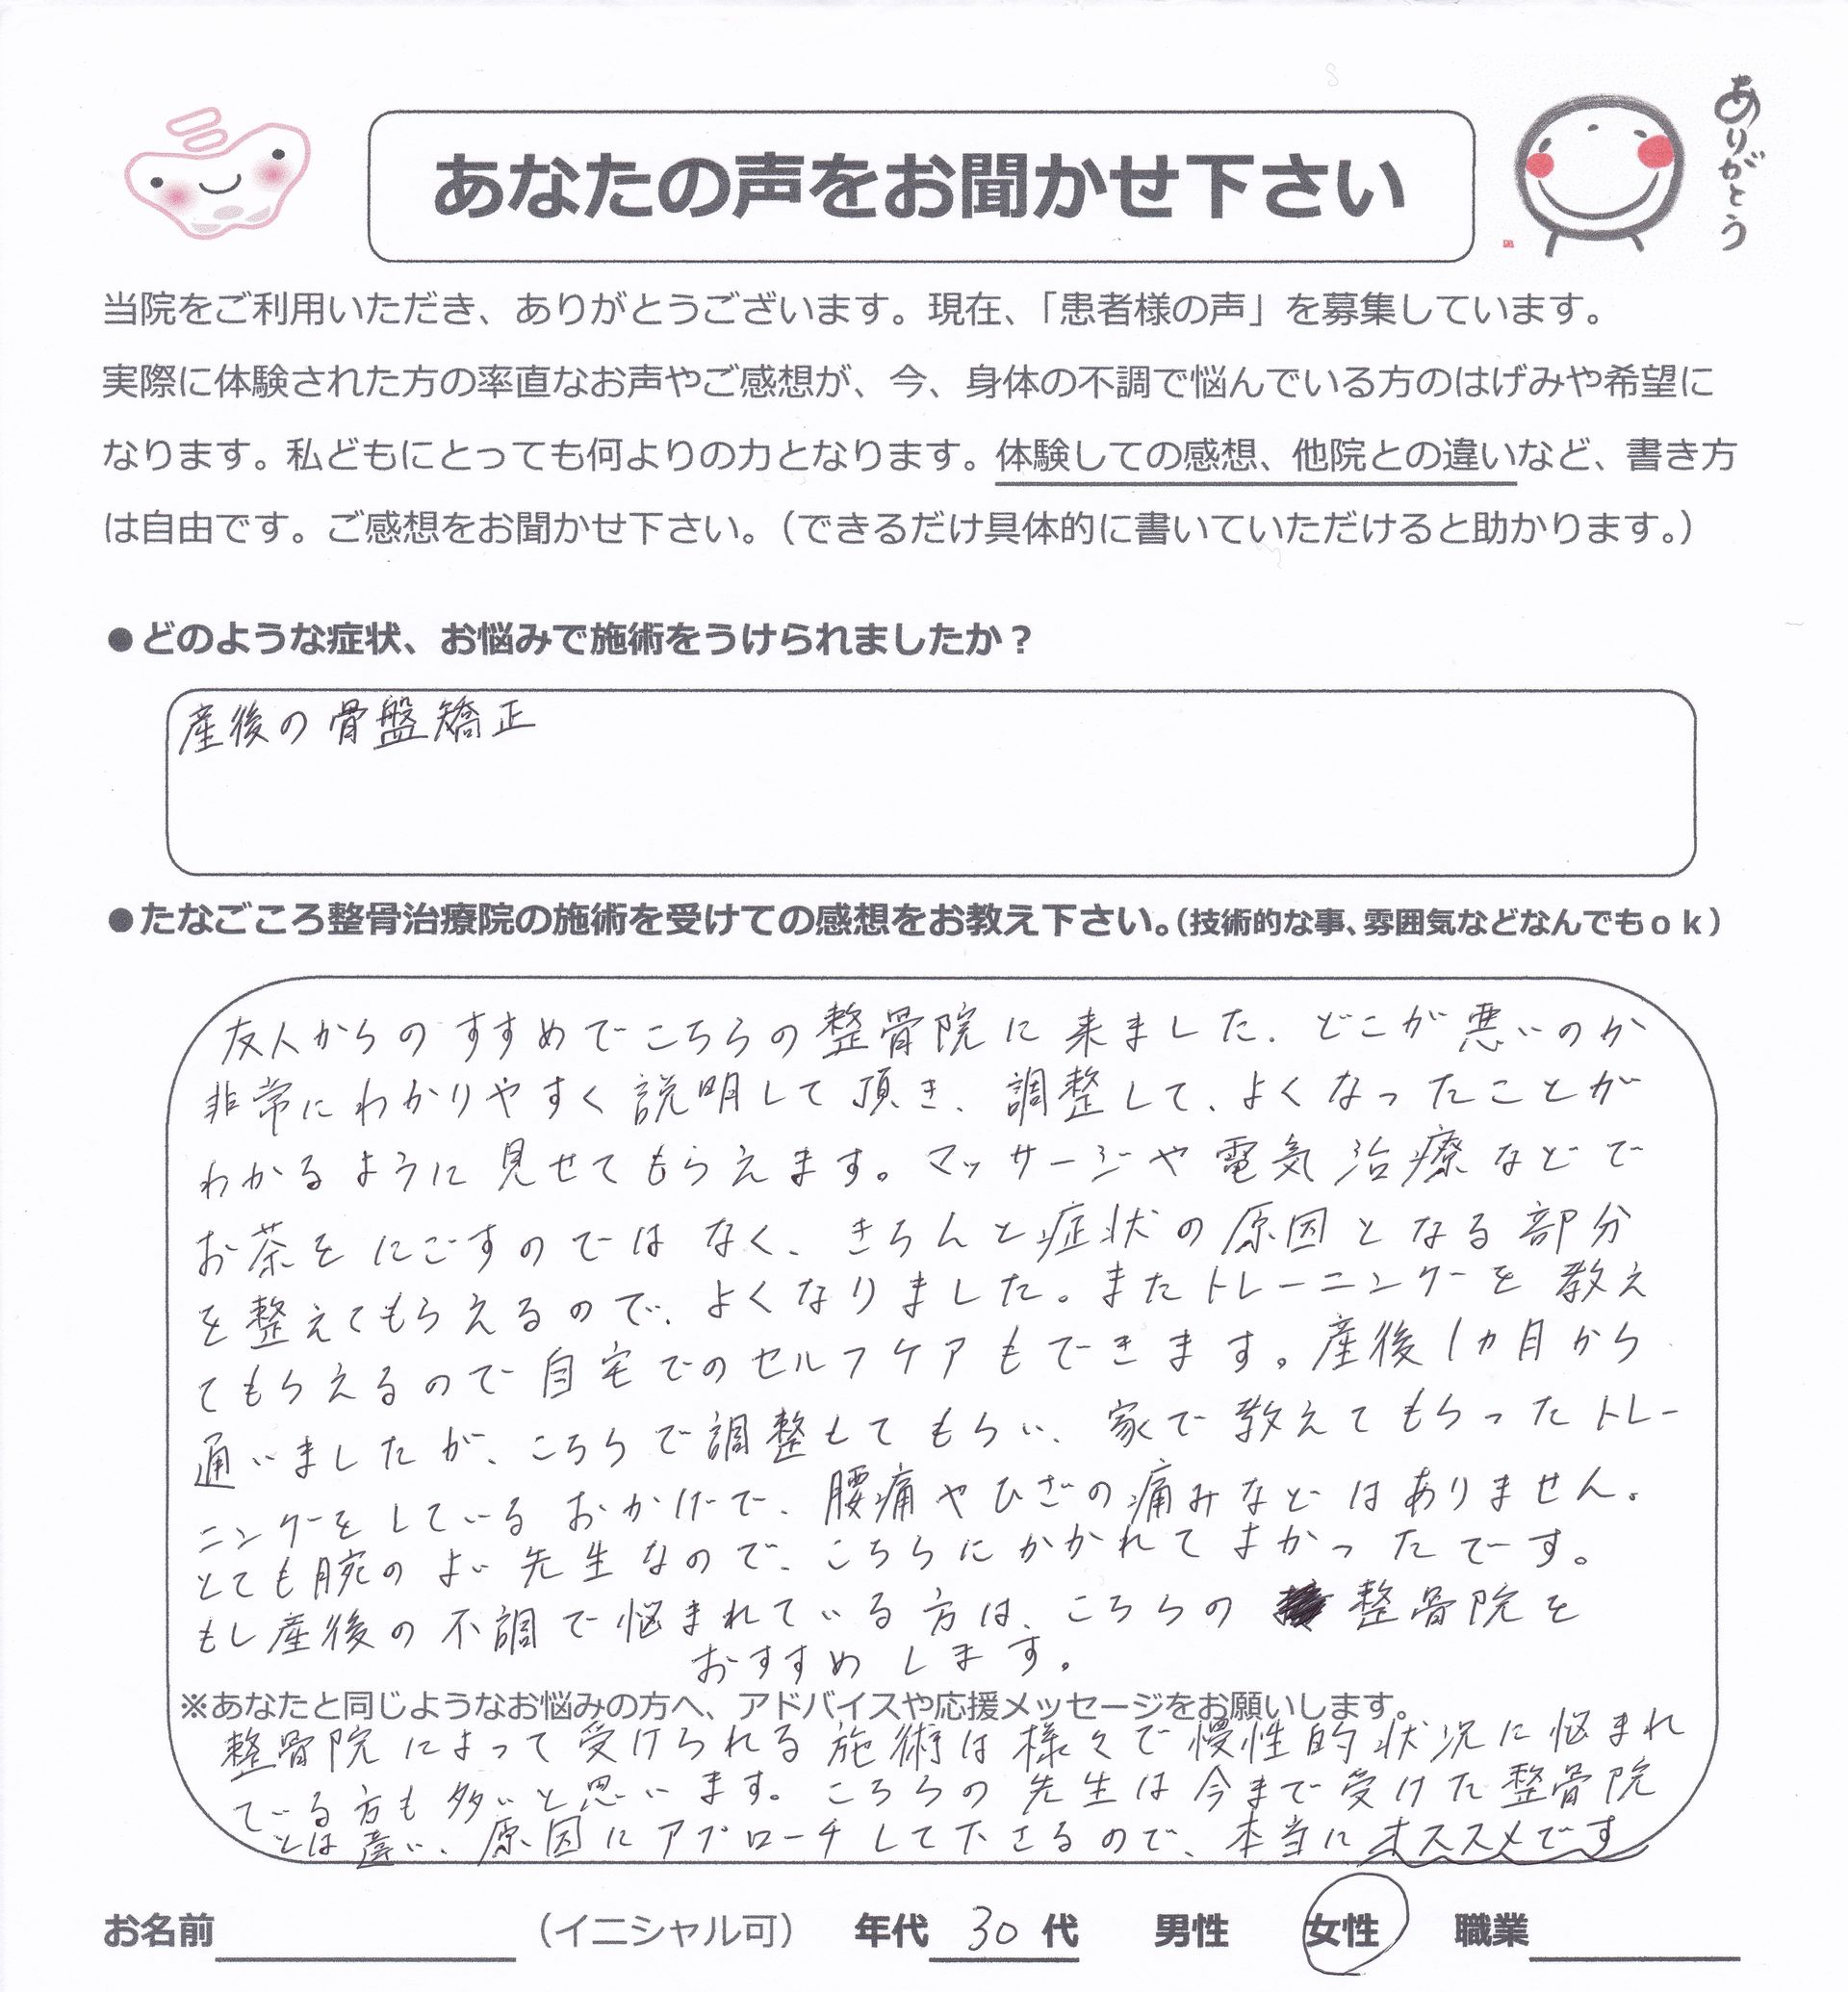 あなたの声をお聞かせ下さい
ありがとう
当院をご利用いただき、ありがとうございます。現在、「患者様の声」を募集しています。
実際に体験された方の率直なお声やご感想が、今、身体の不調で悩んでいる方のはげみや希望に
なります。私どもにとっても何よりの力となります。体験しての感想、他院との違いなど、書き方
は自由です。ご感想をお聞かせ下さい。（できるだけ具体的に書いていただけると助かります。）
●どのような症状、お悩みで施術をうけられましたか？
産後の骨盤矯正
●たなごころ整骨治療院の施術を受けての感想をお教え下さい。（技術的な事、雰囲気などなんでもｏｋ）
友人からのすすめでこちらの整骨院に来ました。どこが悪いのか
非常にわかりやすく説明して頂き、調整して、よくなったことが
わかるように見せてもらえます。マッサージや電気治療などで
お茶をにごすのではなく、きちんと症状の原因となる部分
を整えてもらえるので、よくなりました。またトレーニングを教え
てもらえるので自宅でのセルフケアもできます。産後1ヵ月から
通いましたが、こちらで調整もしてもらい、家で教えてもらったトレー
ニングをしているおかげで、腰痛やひざの痛みなどはありません。
とても腕のよい先生なので、こちらにかかれてよかったでーす。
もし産後の不調で悩まれている方は、こちらの整骨院を
おすすめします。
※あなたと同じようなお悩みの方へ、アドバイスや応援メッセージをお願いします。
整骨院によって受けられる施術は様々で慢性的状況に悩まれ
ている方も多いと思います。こちらの先生は今まで受けた整骨院
とは違い、原因にアプローチして下さるので、本当にオススメです
お名前 （イニシャル可） 年代 30 代 男性 女性 職業